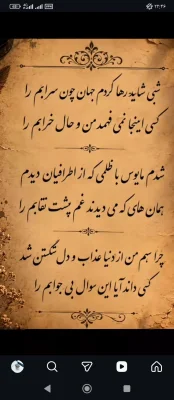 ۱۲:۲۶
شبی شاید رها کردم جهان چون سرابم را
کسی اینجا نمی فهمد من و حال خرابم را
شدم مایوس با ظلمی که از اطرافیان دیدم
همان های که می دیدند غم پشت نقابم را
چرا سهم من از دنیا عذاب و دل شکستن شد
کسی داند آیا این سوال بی جوابم را